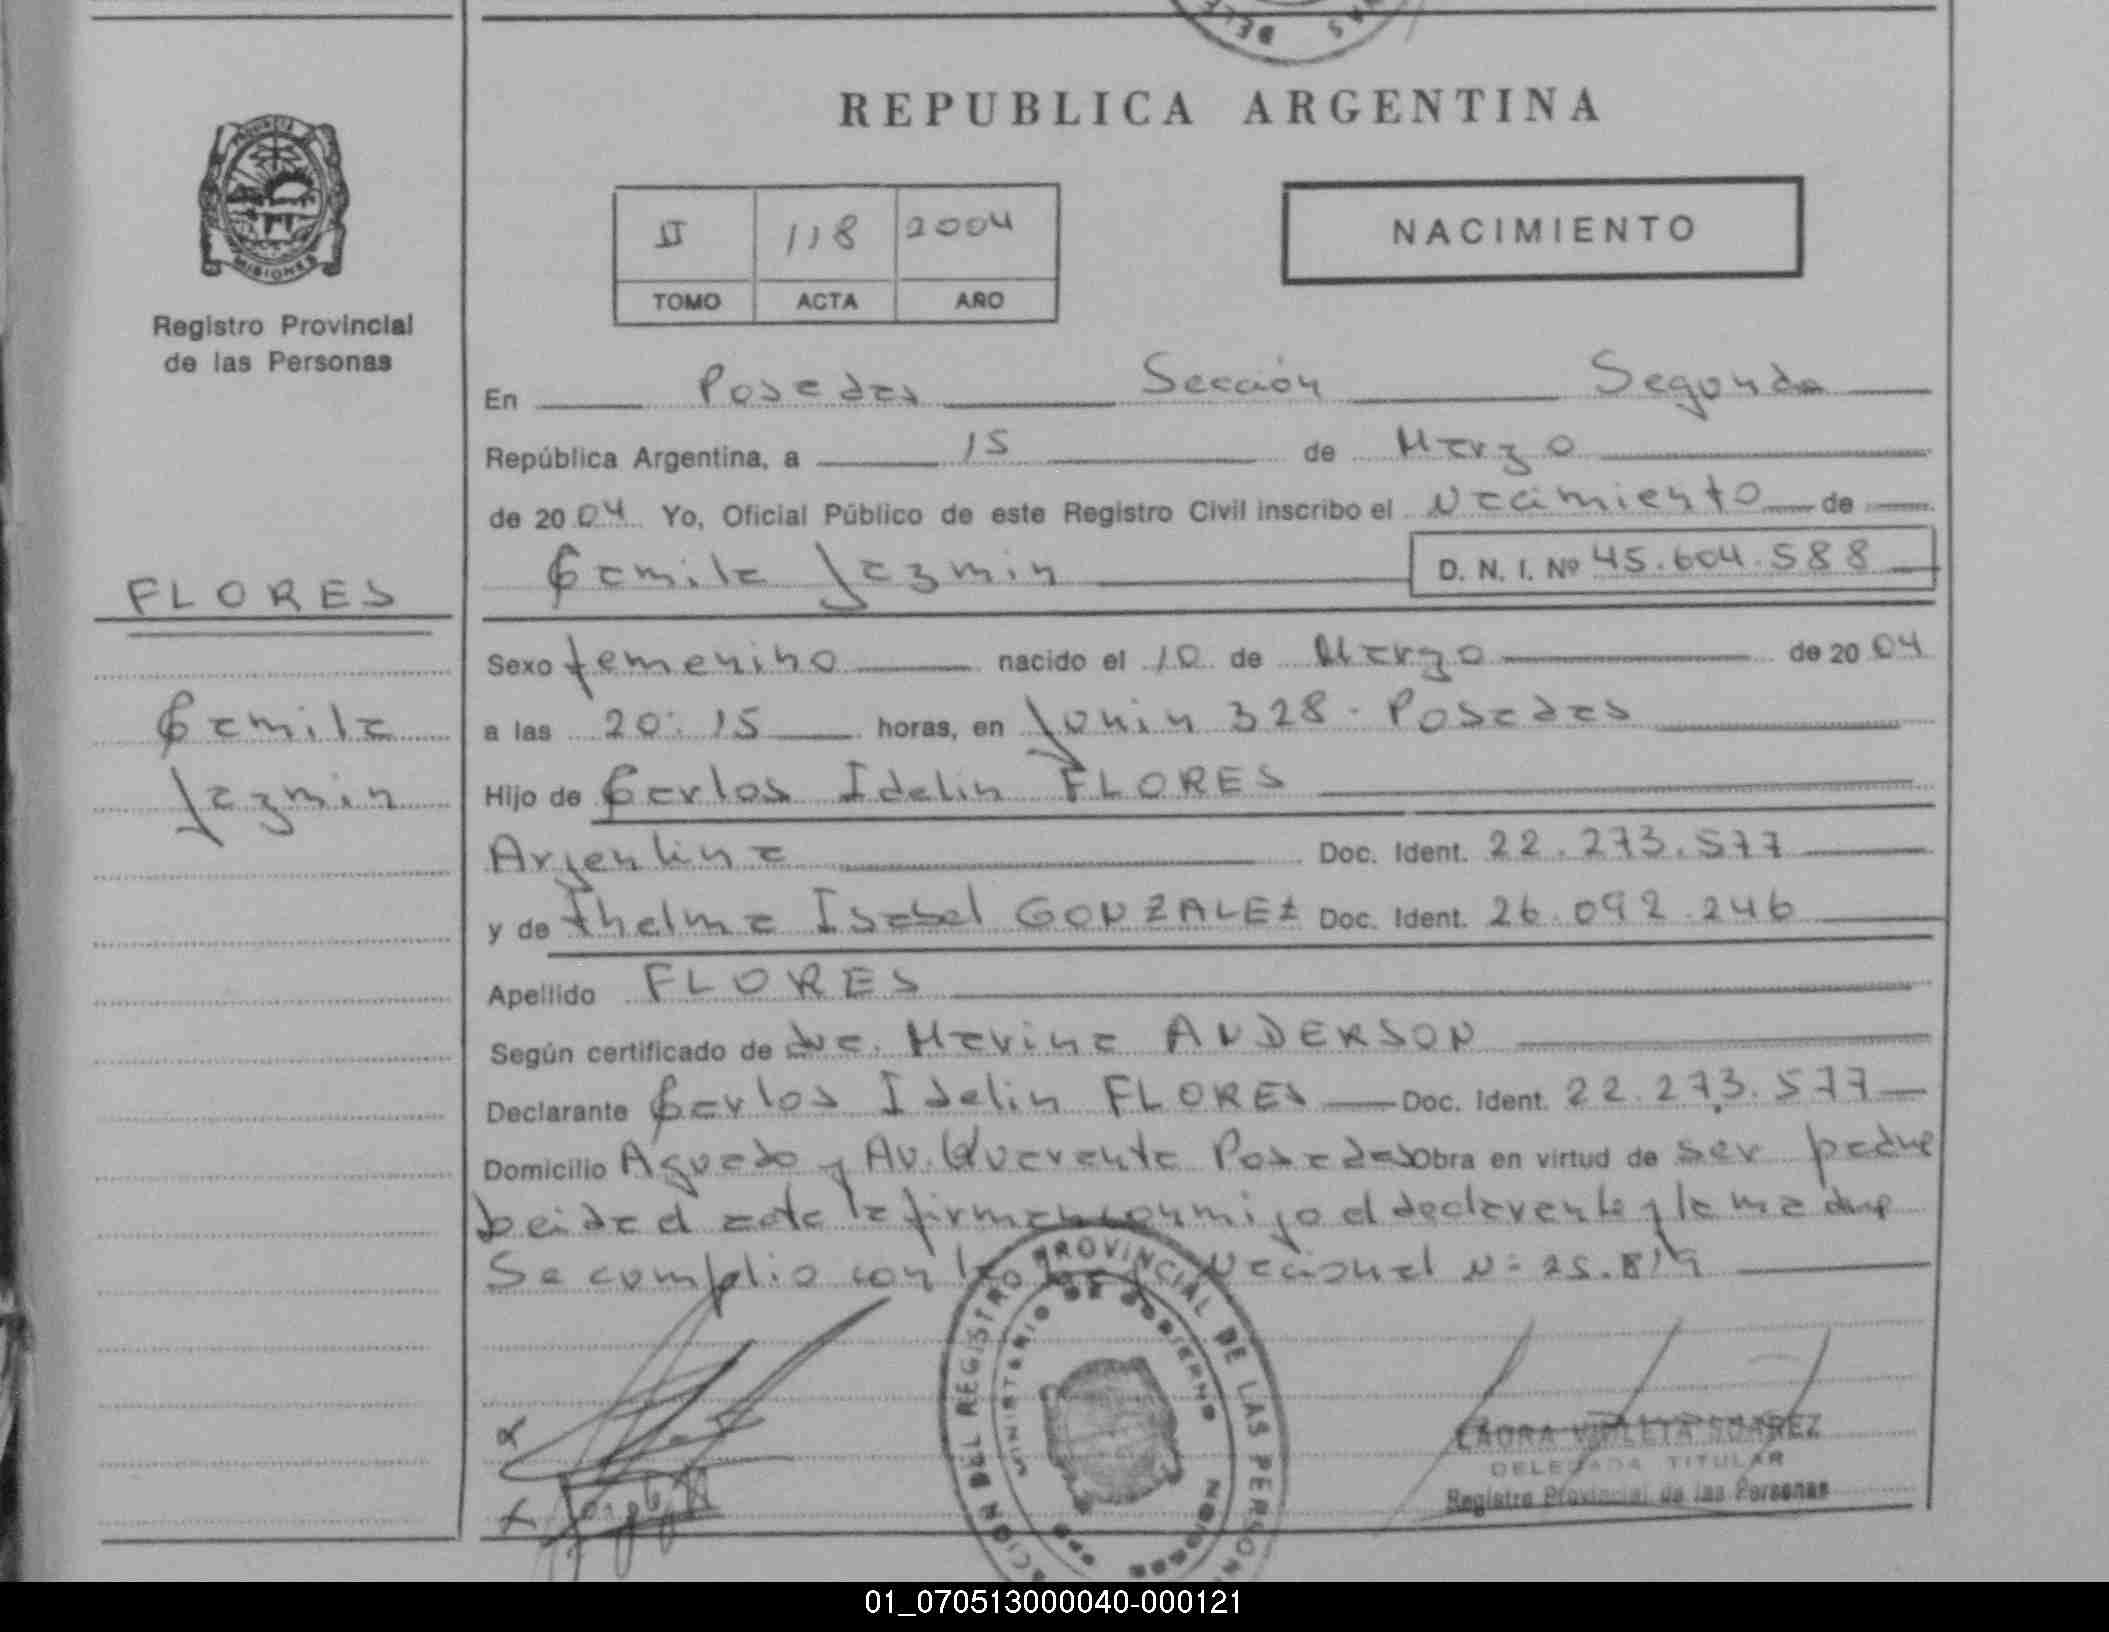 REPUBLICA ARGENTINA
PROVINCIA
MISIONES
Registro Provincial
de las Personas
II 118 2004
TOMO ACTA AÑO
NACIMIENTO
En Posadas Sección Segunda
República Argentina, a 15 de Marzo
de 2004 Yo, Oficial Público de este Registro Civil inscribo el Nacimiento de
Camila Jazmin D. N. I. Nº 45.604.588
FLORES
Camila
Jazmin
Sexo femenino nacido el 10 de Marzo de 2004
a las 20:15 horas, en Junin 328 - Posadas
Hijo de Carlos Idelin FLORES
Argentina Doc. Ident. 22.273.577
y de Thelma Isabel GONZALEZ Doc. Ident. 26.092.246
Apellido FLORES
Según certificado de dra. Marina ANDERSON
Declarante Carlos Idelin FLORES Doc. Ident. 22.273.577
Domicilio Aguado y Av. Quaranta Posadas Obra en virtud de ser padre
Leida el acta la firman conmigo el declarante y la madre
Se cumplio con la Nacional N: 25.819
REGISTRO PROVINCIAL DE LAS PERSON
MINISTERIO DE GOBIERNO
LAURA VIOLETA SUAREZ
DELEGADA TITULAR
Registro Provincial de las Personas
01_070513000040-000121